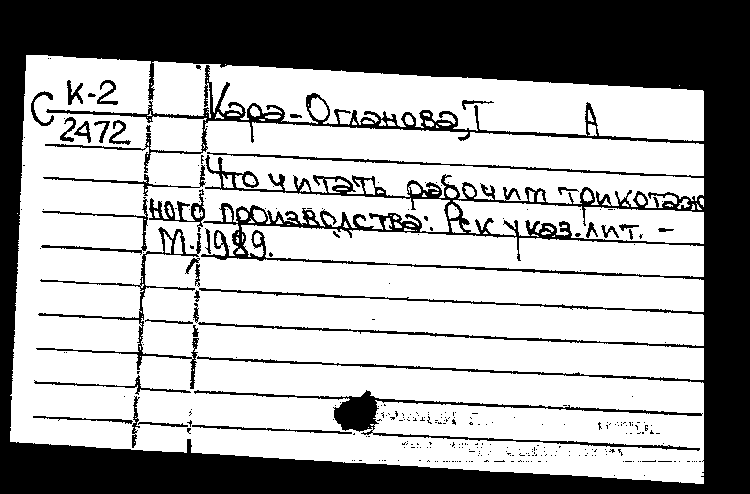 С К-2 Кара-Огланова, Т А
2472
Что читать рабочим трикотаж
ного производства: Рек указ. лит. -
М. 1989.